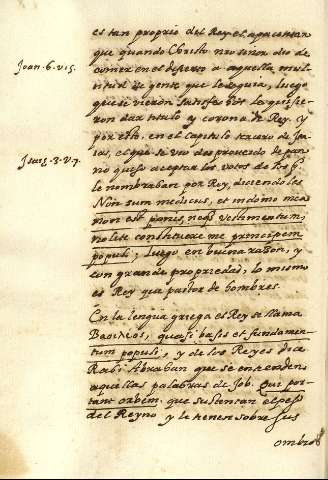 es tan proprio del Rey el apacentar
que quando Christo nro señor dio de
Joan. 6. v. 15.
comer en el desierto a aquella mul
titud de gente que le seguia, luego
que se vieron satisfechos le quisie
ron dar titulo y corona de Rey. y
por esto, en el capitulo tercero de Isa
Isai. 3. v. 7.
ias, el que se vio des proueido de pan
no quiso aceptar los votos de los q
le nombraban por Rey, diciendoles
Non sum medicus, et in domo mea
non est panis, neqʒ vestimentum,
nolite constituere me principem
populi; luego en buena razon, y
con grande propriedad, lo mismo
es Rey que pastor de hombres.
En la lengua griega el Rey se llama
Βασιλεος, quasi basis et fundamen
tum populi, y de los Reyes dice
Rabi Abraham que se entienden
aquellas palabras de Job. Qui por
tant orbem. que sustentan el peso
del Reyno y le tienen sobre sus
ombros